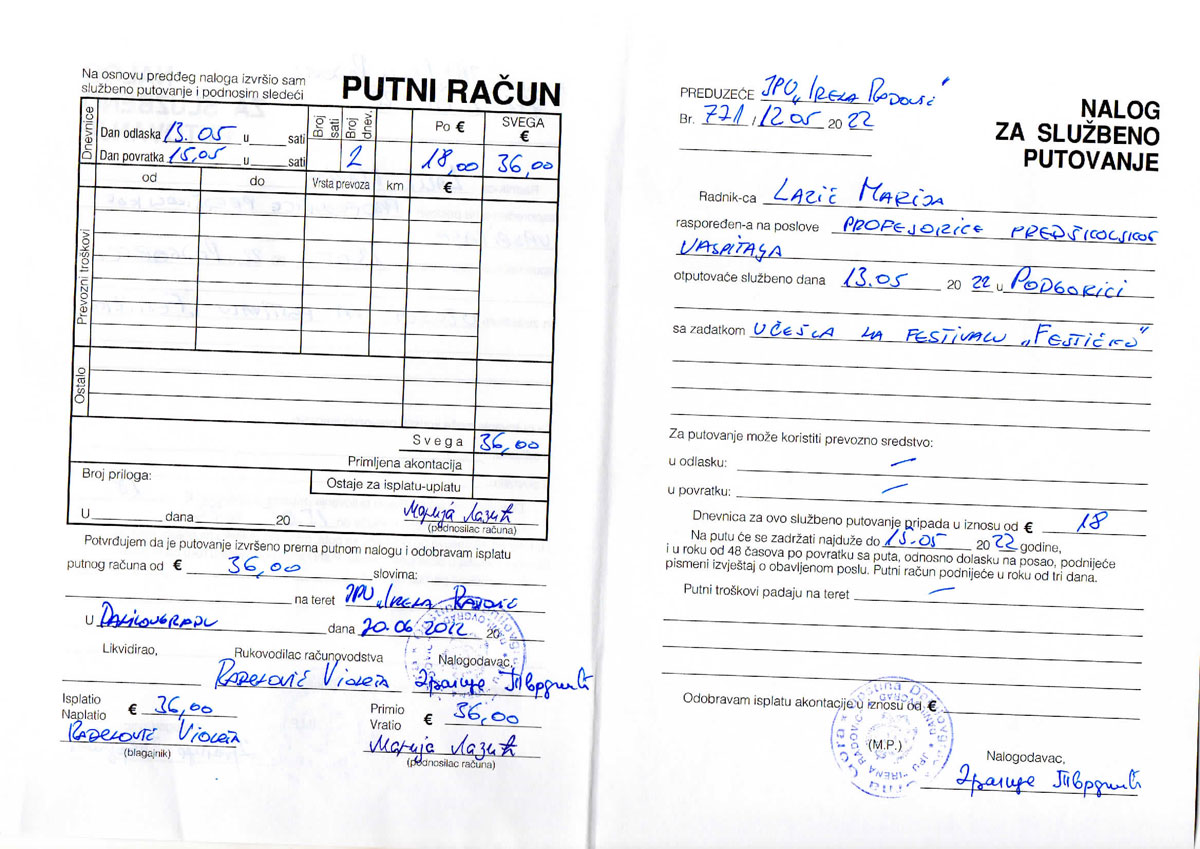 Na osnovu predđeg naloga izvršio sam
službeno putovanje i podnosim sledeći
PUTNI RAČUN
Dnevnice
Dan odlaska 13.05 u sati
Dan povratka 15.05 u sati
Broj sati
Broj dnev.
Po €
SVEGA €
2 18,00 36,00
od do Vrsta prevoza km €
Prevozni troškovi
Ostalo
Svega 36,00
Primljena akontacija
Broj priloga:
Ostaje za isplatu-uplatu
Марија Лазић
U dana 20
(podnosilac računa)
Potvrđujem da je putovanje izvršeno prema putnom nalogu i odobravam isplatu
putnog računa od € 36,00 slovima:
na teret JPU "Irena Radović
U Danilovgradu dana 20.06 2022 20
Likvidirao, Rukovodilac računovodstva Nalogodavac,
Radenović Violeta
Isplatio
Naplatio € 36,00
Primio
Vratio € 36,00
Radenović Violeta Марија Лазић
(blagajnik) (podnosilac računa)
PREDUZEĆE JPU "Irena Radović"
Br. 771 / 12 05 20 22
NALOG
ZA SLUŽBENO
PUTOVANJE
Radnik-ca Lazić Marija
raspoređen-a na poslove PROFESORICE PREDŠKOLSKOG
VASPITANJA
otputovaće službeno dana 13.05 20 22 u PODGORICI
sa zadatkom UČEŠĆA NA FESTIVALU „FESTIĆKO"
Za putovanje može koristiti prevozno sredstvo:
u odlasku: —
u povratku: —
Dnevnica za ovo službeno putovanje pripada u iznosu od € 18
Na putu će se zadržati najduže do 15.05 20 22 godine,
i u roku od 48 časova po povratku sa puta, odnosno dolasku na posao, podnijeće
pismeni izvještaj o obavljenom poslu. Putni račun podnijeće u roku od tri dana.
Putni troškovi padaju na teret —
Odobravam isplatu akontacije u iznosu od €
(M.P.)
Nalogodavac,